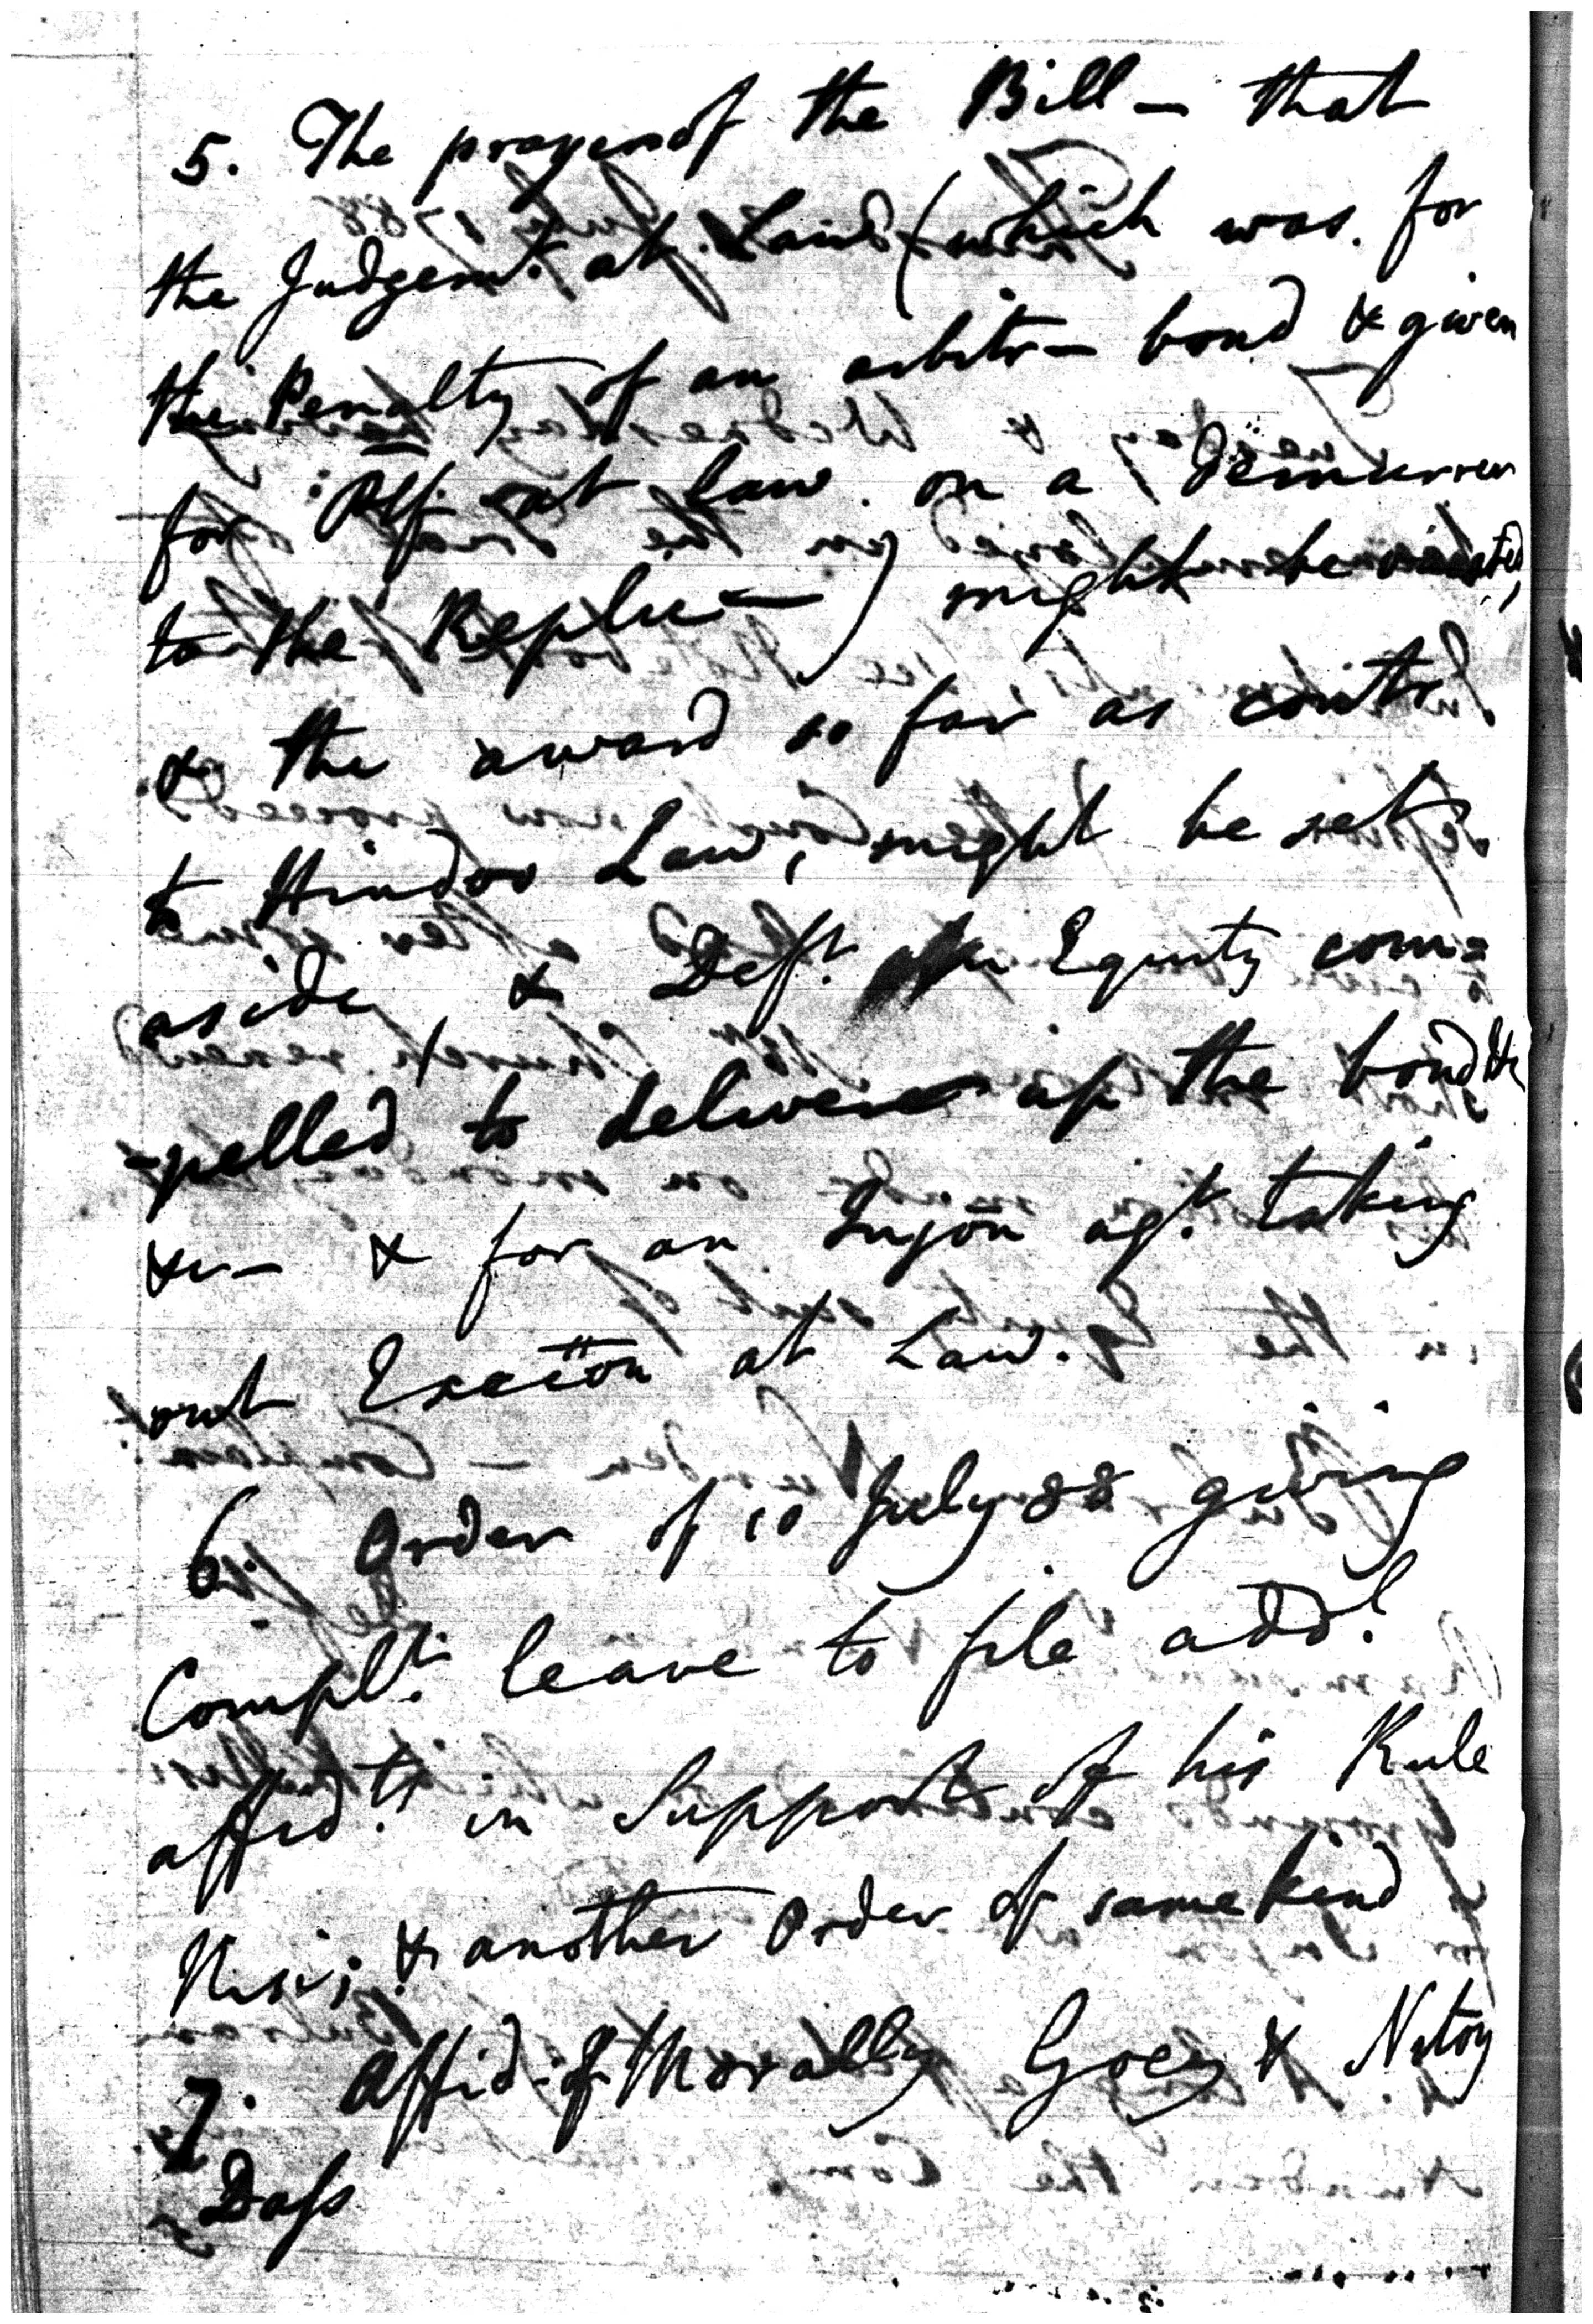 5. The prayer of the Bill — that
the Judgemt. at Law (which was for
the Penalty of an arbitr— bond & given
for Plf. at Law on a Demurrer
to the Replic—) might be vacated,
& the award so far as contr.
to Hindoo Law, might be set
aside, & Deft. in Equity com=
-pelled to deliver up the bond &c
&c— & for an Injōn agt. taking
out Execiōn at Law.
6. Order of 10 July 88 giving
Complt. leave to file addl.
affidts. in Support of his Rule
Nisi; & another Order of same kind
7. Affid. of Morally Gocy & Nitoy
Dass